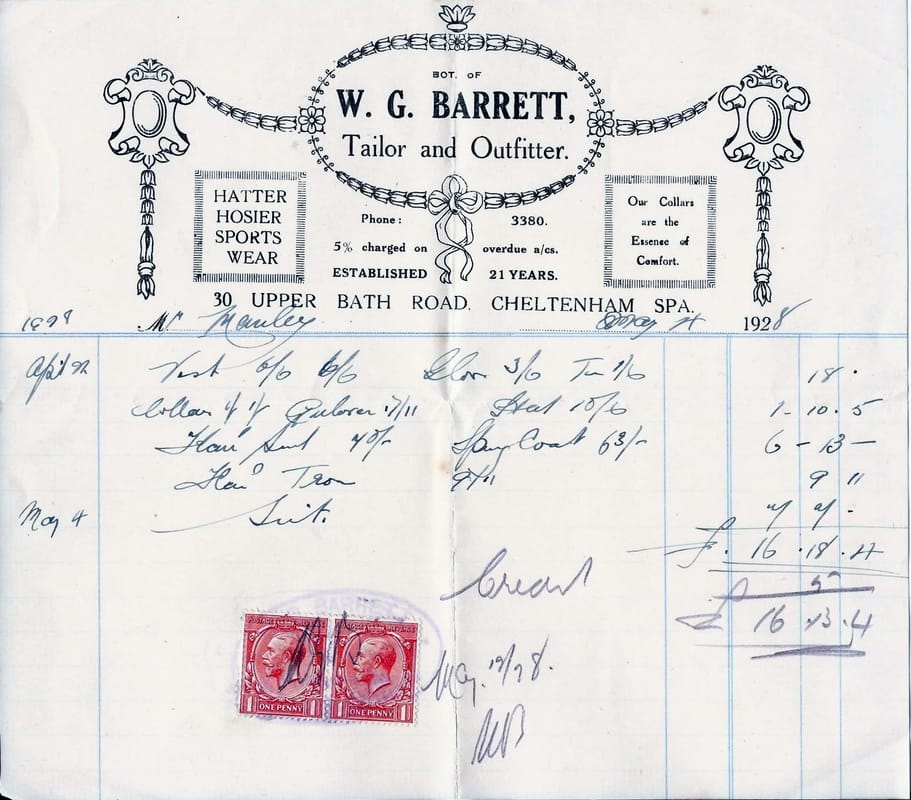 BOT. OF
W. G. BARRETT,
Tailor and Outfitter.
HATTER
HOSIER
SPORTS
WEAR
Phone: 3380.
5% charged on overdue a/cs.
ESTABLISHED 21 YEARS.
Our Collars
are the
Essence of
Comfort.
30 UPPER BATH ROAD. CHELTENHAM SPA.
1928 Mr Manley May 4 1928
April Vest 6/6 6/6 3/6 1/6 18 .
Collar 17/11 Hat 10/6 1 - 10 . 5
Suit Coat 63/- 6 - 13 -
9/11 9 11
May 4 Suit.
£. 16 . 18 . 4
5
£ 16 . 13 . 4
May. 19/28.
POSTAGE REVENUE
ONE PENNY
POSTAGE REVENUE
ONE PENNY